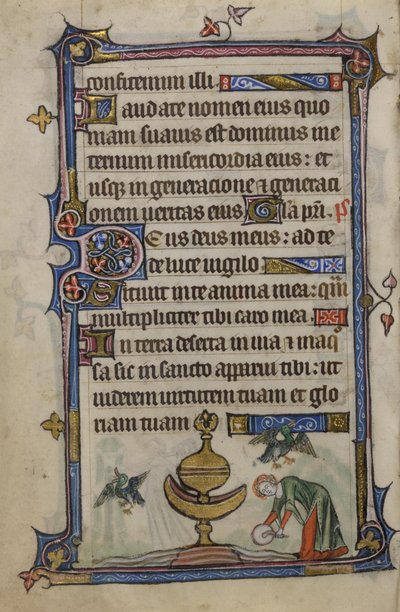 confitemini illi.
Laudate nomen eius quo
niam suauis est dominus in e
ternum misericordia eius: et
usq; in generacione ⁊ generaci
onem ueritas eius. Gl̄a pr̄i. ps
Deus deus meus: ad te
de luce uigilo
Sitiuit in te anima mea: qm̄
multipliciter tibi caro mea.
In terra deserta in uia ⁊ inaq̄
sa sic in sancto apparui tibi: ut
uiderem uirtutem tuam et glo
riam tuam